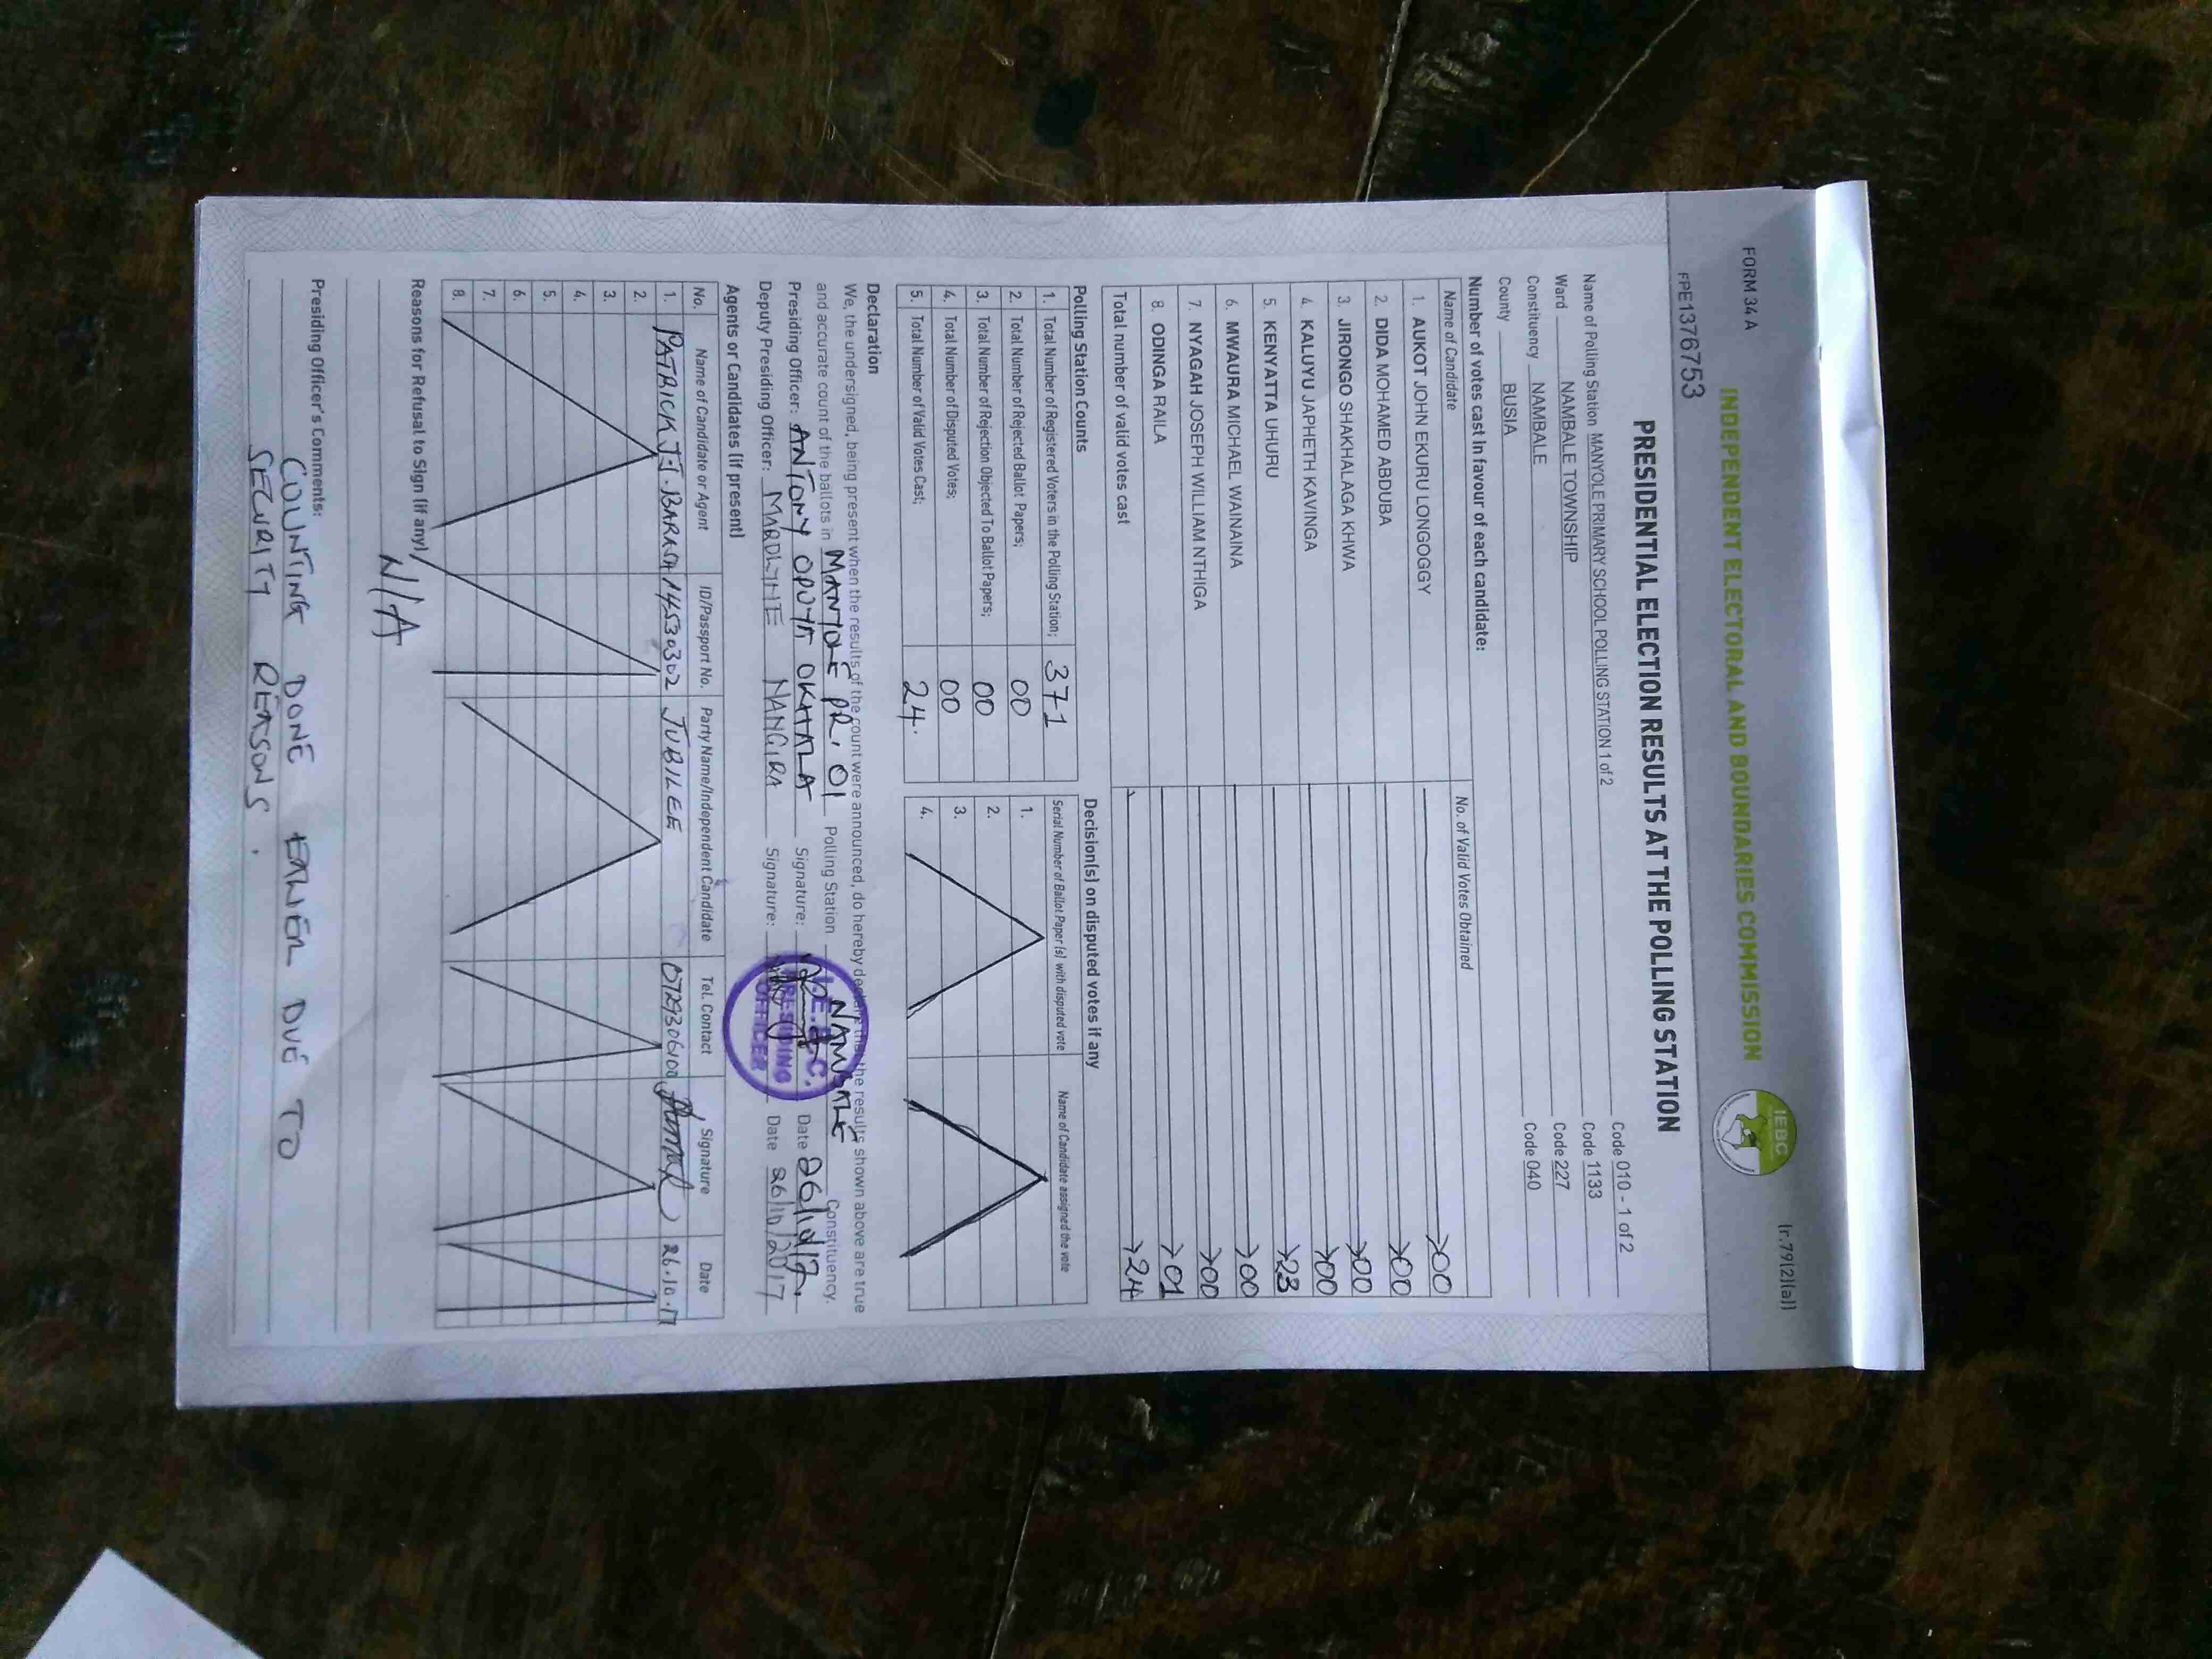 FORM 34 A
(r.79(2)(a))
INDEPENDENT ELECTORAL AND BOUNDARIES COMMISSION
IEBC
FPE1376753
PRESIDENTIAL ELECTION RESULTS AT THE POLLING STATION
Name of Polling Station MANYOLE PRIMARY SCHOOL POLLING STATION 1 of 2 Code 010 - 1 of 2
Ward NAMBALE TOWNSHIP Code 1133
Constituency NAMBALE Code 227
County BUSIA Code 040
Number of votes cast in favour of each candidate:
Name of Candidate No. of Valid Votes Obtained
1. AUKOT JOHN EKURU LONGOGGY 00
2. DIDA MOHAMED ABDUBA 00
3. JIRONGO SHAKHALAGA KHWA 00
4. KALUYU JAPHETH KAVINGA 00
5. KENYATTA UHURU 23
6. MWAURA MICHAEL WAINAINA 00
7. NYAGAH JOSEPH WILLIAM NTHIGA 00
8. ODINGA RAILA 01
Total number of valid votes cast 24
Polling Station Counts
1. Total Number of Registered Voters in the Polling Station; 371
2. Total Number of Rejected Ballot Papers; 00
3 Total Number of Rejection Objected To Ballot Papers; 00
4. Total Number of Disputed Votes; 00
5. Total Number of Valid Votes Cast; 24.
Decision(s) on disputed votes if any
Serial Number of Ballot Paper (s) with disputed vote Name of Candidate assigned the vote
1.
2.
3.
4.
Declaration
We, the undersigned, being present when the results of the count were announced, do hereby declare that the results shown above are true
and accurate count of the ballots in MANYOLE PR. 01 Polling Station NAMBALE Constituency.
Presiding Officer: ANTONY OPOYA OKHALA Signature: Date 26/10/17.
Deputy Presiding Officer: NANGIRA Signature: Date 26/10/2017
I.E.B.C.
PRESIDING
OFFICER
Agents or Candidates (if present)
No. Name of Candidate or Agent ID/Passport No. Party Name/Independent Candidate Tel. Contact Signature Date
1. PATRICK J.I. BARASA 14530302 JUBILEE 0729306100 26.10.17
2.
3.
4.
5.
6.
7.
8.
Reasons for Refusal to Sign (if any)
N/A
Presiding Officer's Comments:
COUNTING DONE EALIER DUE TO
SECURITY REASONS.